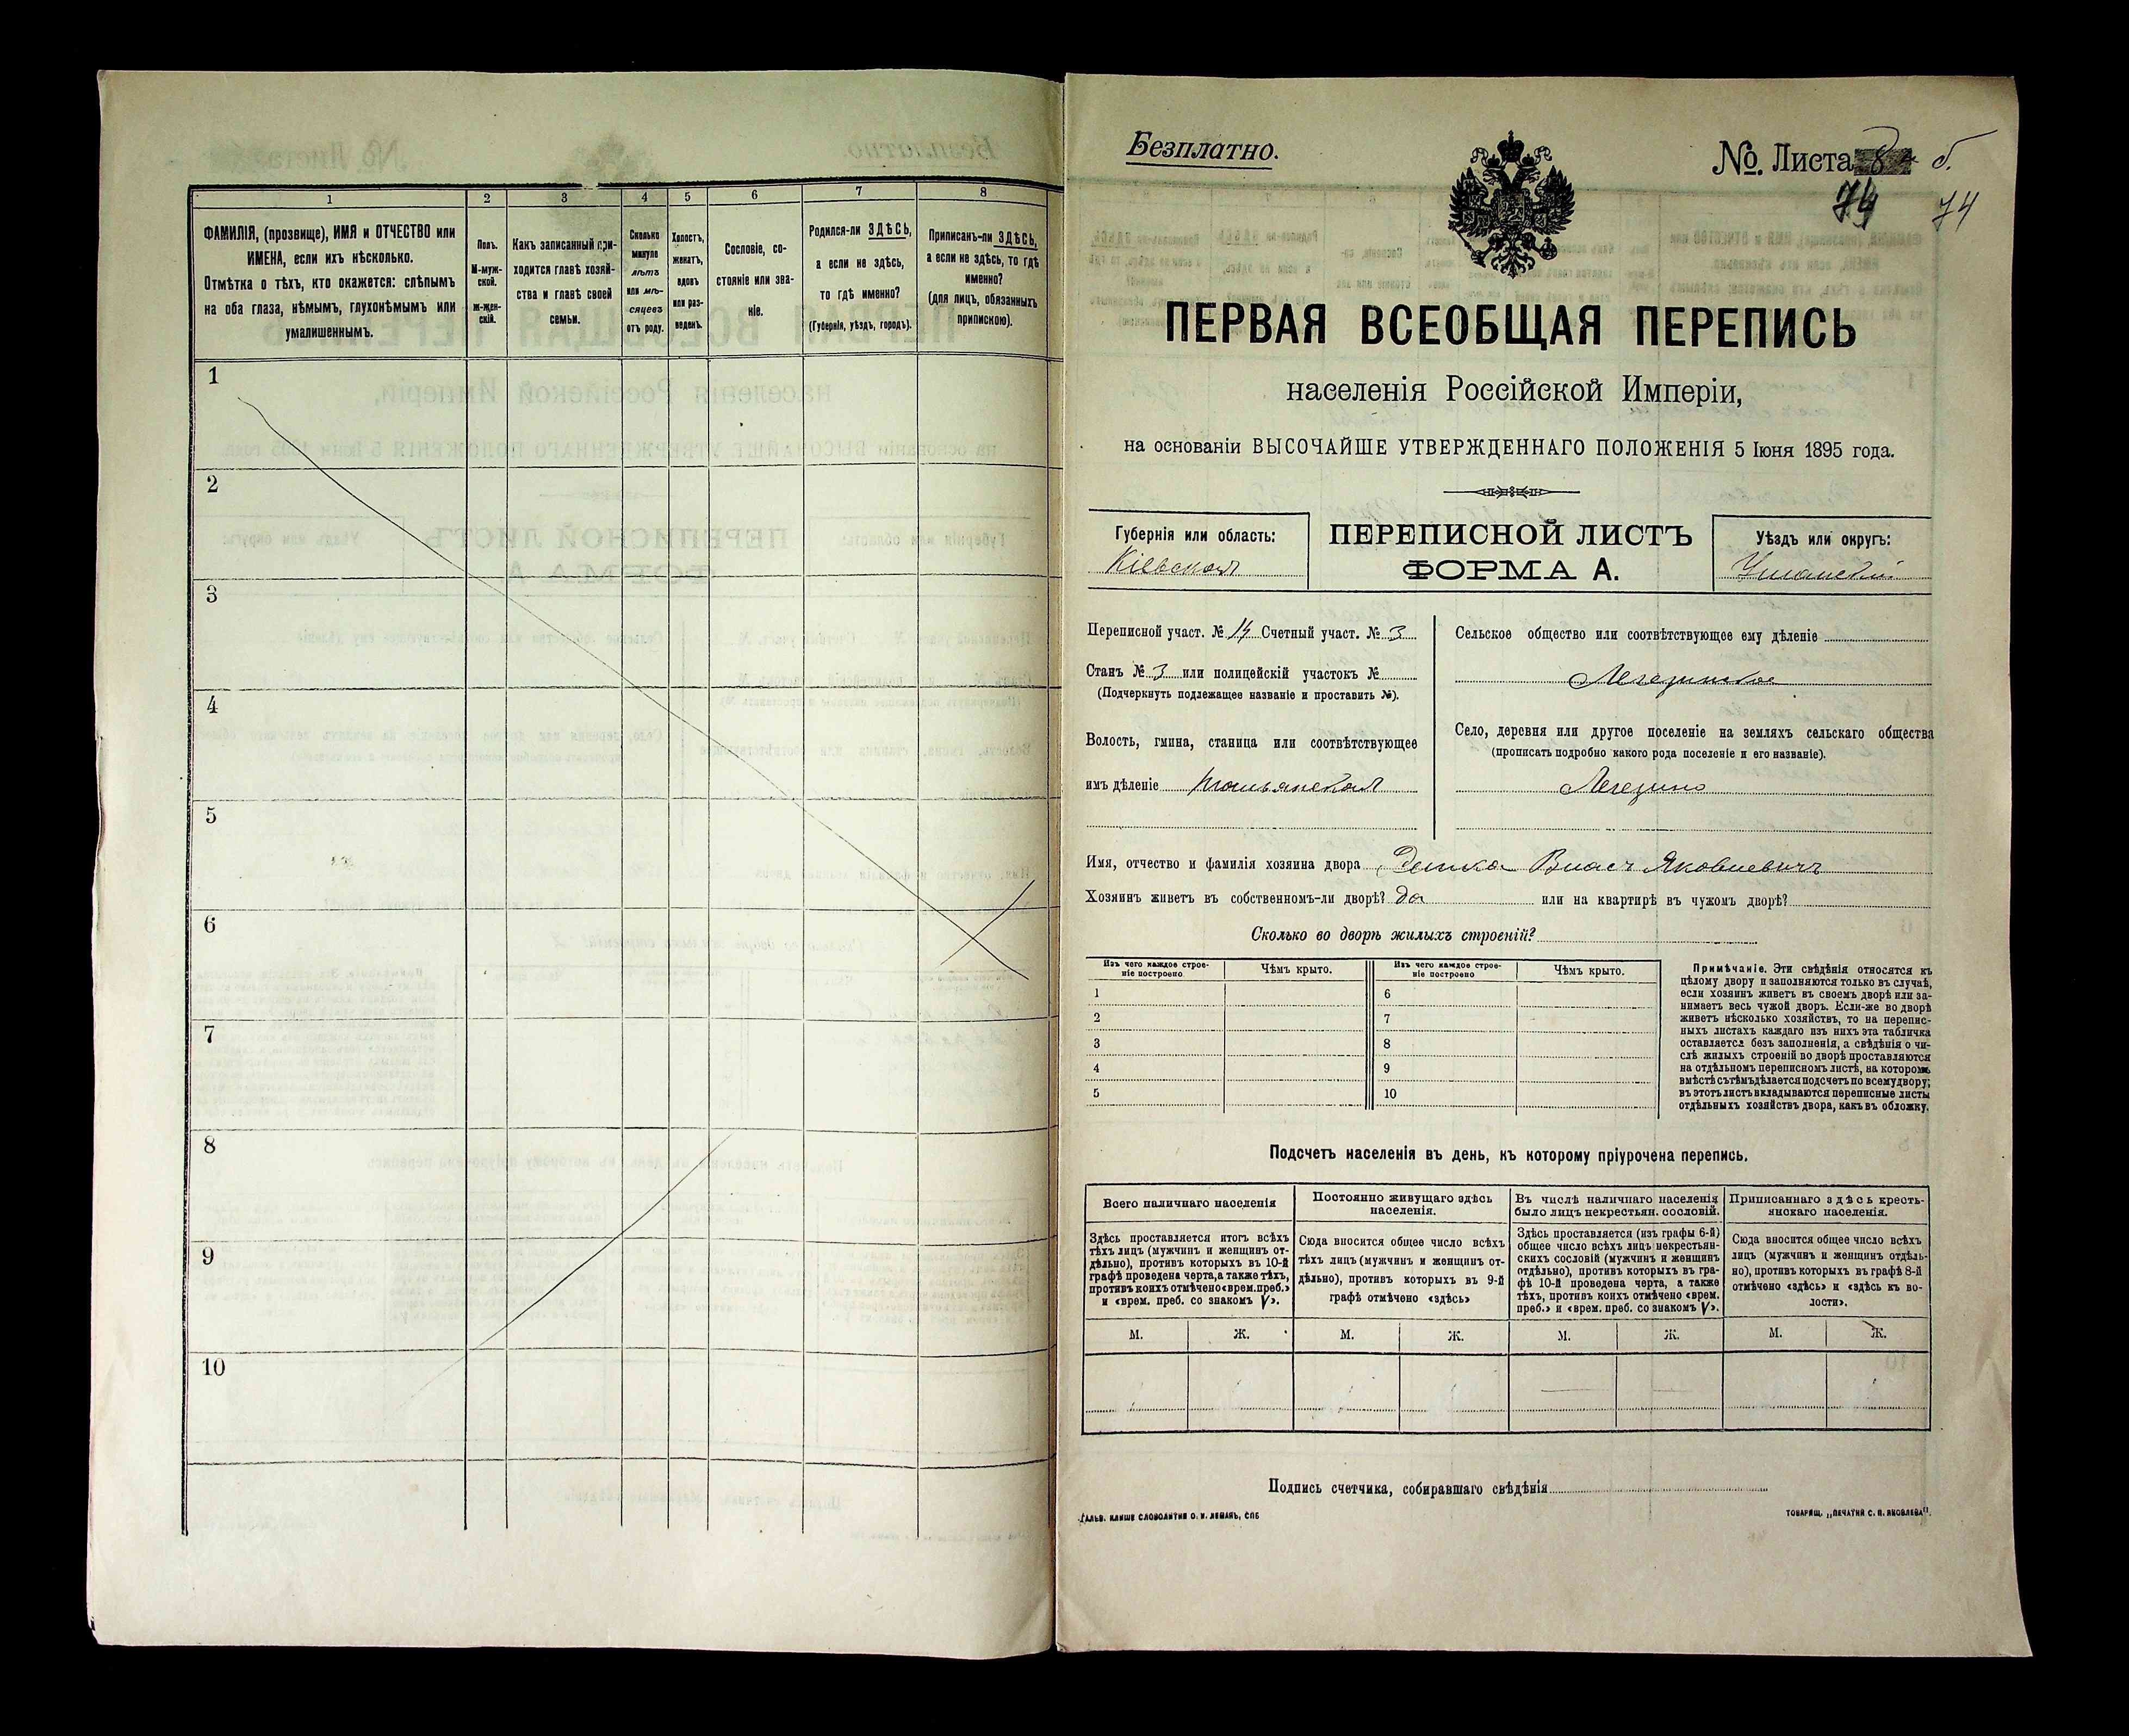 1 2 3 4 5 6 7 8
ФАМИЛІЯ, (прозвище), ИМЯ и ОТЧЕСТВО или
ИМЕНА, если ихъ нѣсколько.
Отмѣтка о тѣхъ, кто окажется: слѣпымъ
на оба глаза, нѣмымъ, глухонѣмымъ или
умалишеннымъ.
Полъ.
М-муж-
ской.
Ж-жен-
скій.
Какъ записанный при-
ходится главѣ хозяй-
ства и главѣ своей
семьи.
Сколько
минуло
лѣтъ
или мѣ-
сяцевъ
отъ роду.
Холостъ,
женатъ,
вдовъ
или раз-
веденъ.
Сословіе, со-
стояніе или зва-
ніе.
Родился-ли ЗДѢСЬ,
а если не здѣсь,
то гдѣ именно?
(Губернія, уѣздъ, городъ).
Приписанъ-ли ЗДѢСЬ,
а если не здѣсь, то гдѣ
именно?
(для лицъ, обязанныхъ
припискою).
1
2
3
4
5
6
7
8
9
10
Безплатно.
№. Листа 8 б.
74 74
ПЕРВАЯ ВСЕОБЩАЯ ПЕРЕПИСЬ
населенія Россійской Имперіи,
на основаніи ВЫСОЧАЙШЕ УТВЕРЖДЕННАГО ПОЛОЖЕНІЯ 5 Іюня 1895 года.
Губернія или область:
Кіевская
ПЕРЕПИСНОЙ ЛИСТЪ
ФОРМА А.
Уѣздъ или округъ:
Уманскій
Переписной участ. № 14 Счетный участ. № 3
Станъ № 3 или полицейскій участокъ №
(Подчеркнуть подлежащее названіе и проставить №).
Волость, гмина, станица или соотвѣтствующее
имъ дѣленіе Тальянская
Сельское общество или соотвѣтствующее ему дѣленіе
Легезинское
Село, деревня или другое поселеніе на земляхъ сельскаго общества
(прописать подробно какого рода поселеніе и его названіе).
Легезино
Имя, отчество и фамилія хозяина двора Власъ Яковлевичъ
Хозяинъ живетъ въ собственномъ-ли дворѣ? да или на квартирѣ въ чужомъ дворѣ?
Сколько во дворѣ жилыхъ строеній?
Изъ чего каждое строе-
ніе построено
Чѣмъ крыто.
Изъ чего каждое строе-
ніе построено
Чѣмъ крыто.
1 6
2 7
3 8
4 9
5 10
Примѣчаніе. Эти свѣдѣнія относятся къ
цѣлому двору и заполняются только въ случаѣ,
если хозяинъ живетъ въ своемъ дворѣ или за-
нимаетъ весь чужой дворъ. Если-же во дворѣ
живетъ нѣсколько хозяйствъ, то на перепис-
ныхъ листахъ каждаго изъ нихъ эта табличка
оставляется безъ заполненія, а свѣдѣнія о чи-
слѣ жилыхъ строеній во дворѣ проставляются
на отдѣльномъ переписномъ листѣ, на которомъ
вмѣстѣ съ тѣмъ дѣлается подсчетъ по всему двору;
въ этотъ листъ вкладываются переписные листы
отдѣльныхъ хозяйствъ двора, какъ въ обложку.
Подсчетъ населенія въ день, къ которому пріурочена перепись.
Всего наличнаго населенія
Здѣсь проставляется итогъ всѣхъ
тѣхъ лицъ (мужчинъ и женщинъ от-
дѣльно), противъ которыхъ въ 10-й
графѣ проведена черта, а также тѣхъ,
противъ коихъ отмѣчено «врем. преб.»
и «врем. преб. со знакомъ V».
Постоянно живущаго здѣсь
населенія.
Сюда вносится общее число всѣхъ
тѣхъ лицъ (мужчинъ и женщинъ от-
дѣльно), противъ которыхъ въ 9-й
графѣ отмѣчено «здѣсь»
Въ числѣ наличнаго населенія
было лицъ некрестьян. сословій.
Здѣсь проставляется (изъ графы 6-й)
общее число всѣхъ лицъ некрестьян-
скихъ сословій (мужчинъ и женщинъ
отдѣльно), противъ которыхъ въ гра-
фѣ 10-й проведена черта, а также
тѣхъ, противъ коихъ отмѣчено «врем.
преб.» и «врем. преб. со знакомъ V».
Приписаннаго здѣсь кресть-
янскаго населенія.
Сюда вносится общее число всѣхъ
лицъ (мужчинъ и женщинъ отдѣль-
но), противъ которыхъ въ графѣ 8-й
отмѣчено «здѣсь» и «здѣсь къ во-
лости».
М. Ж. М. Ж. М. Ж. М. Ж.
Подпись счетчика, собиравшаго свѣдѣнія
ГАЛЬВ. КЛИШЕ СЛОВОЛИТНИ О. И. ЛЕМАНЪ, СПБ
ТОВАРИЩ. „ПЕЧАТНИ С. П. ЯКОВЛЕВА".